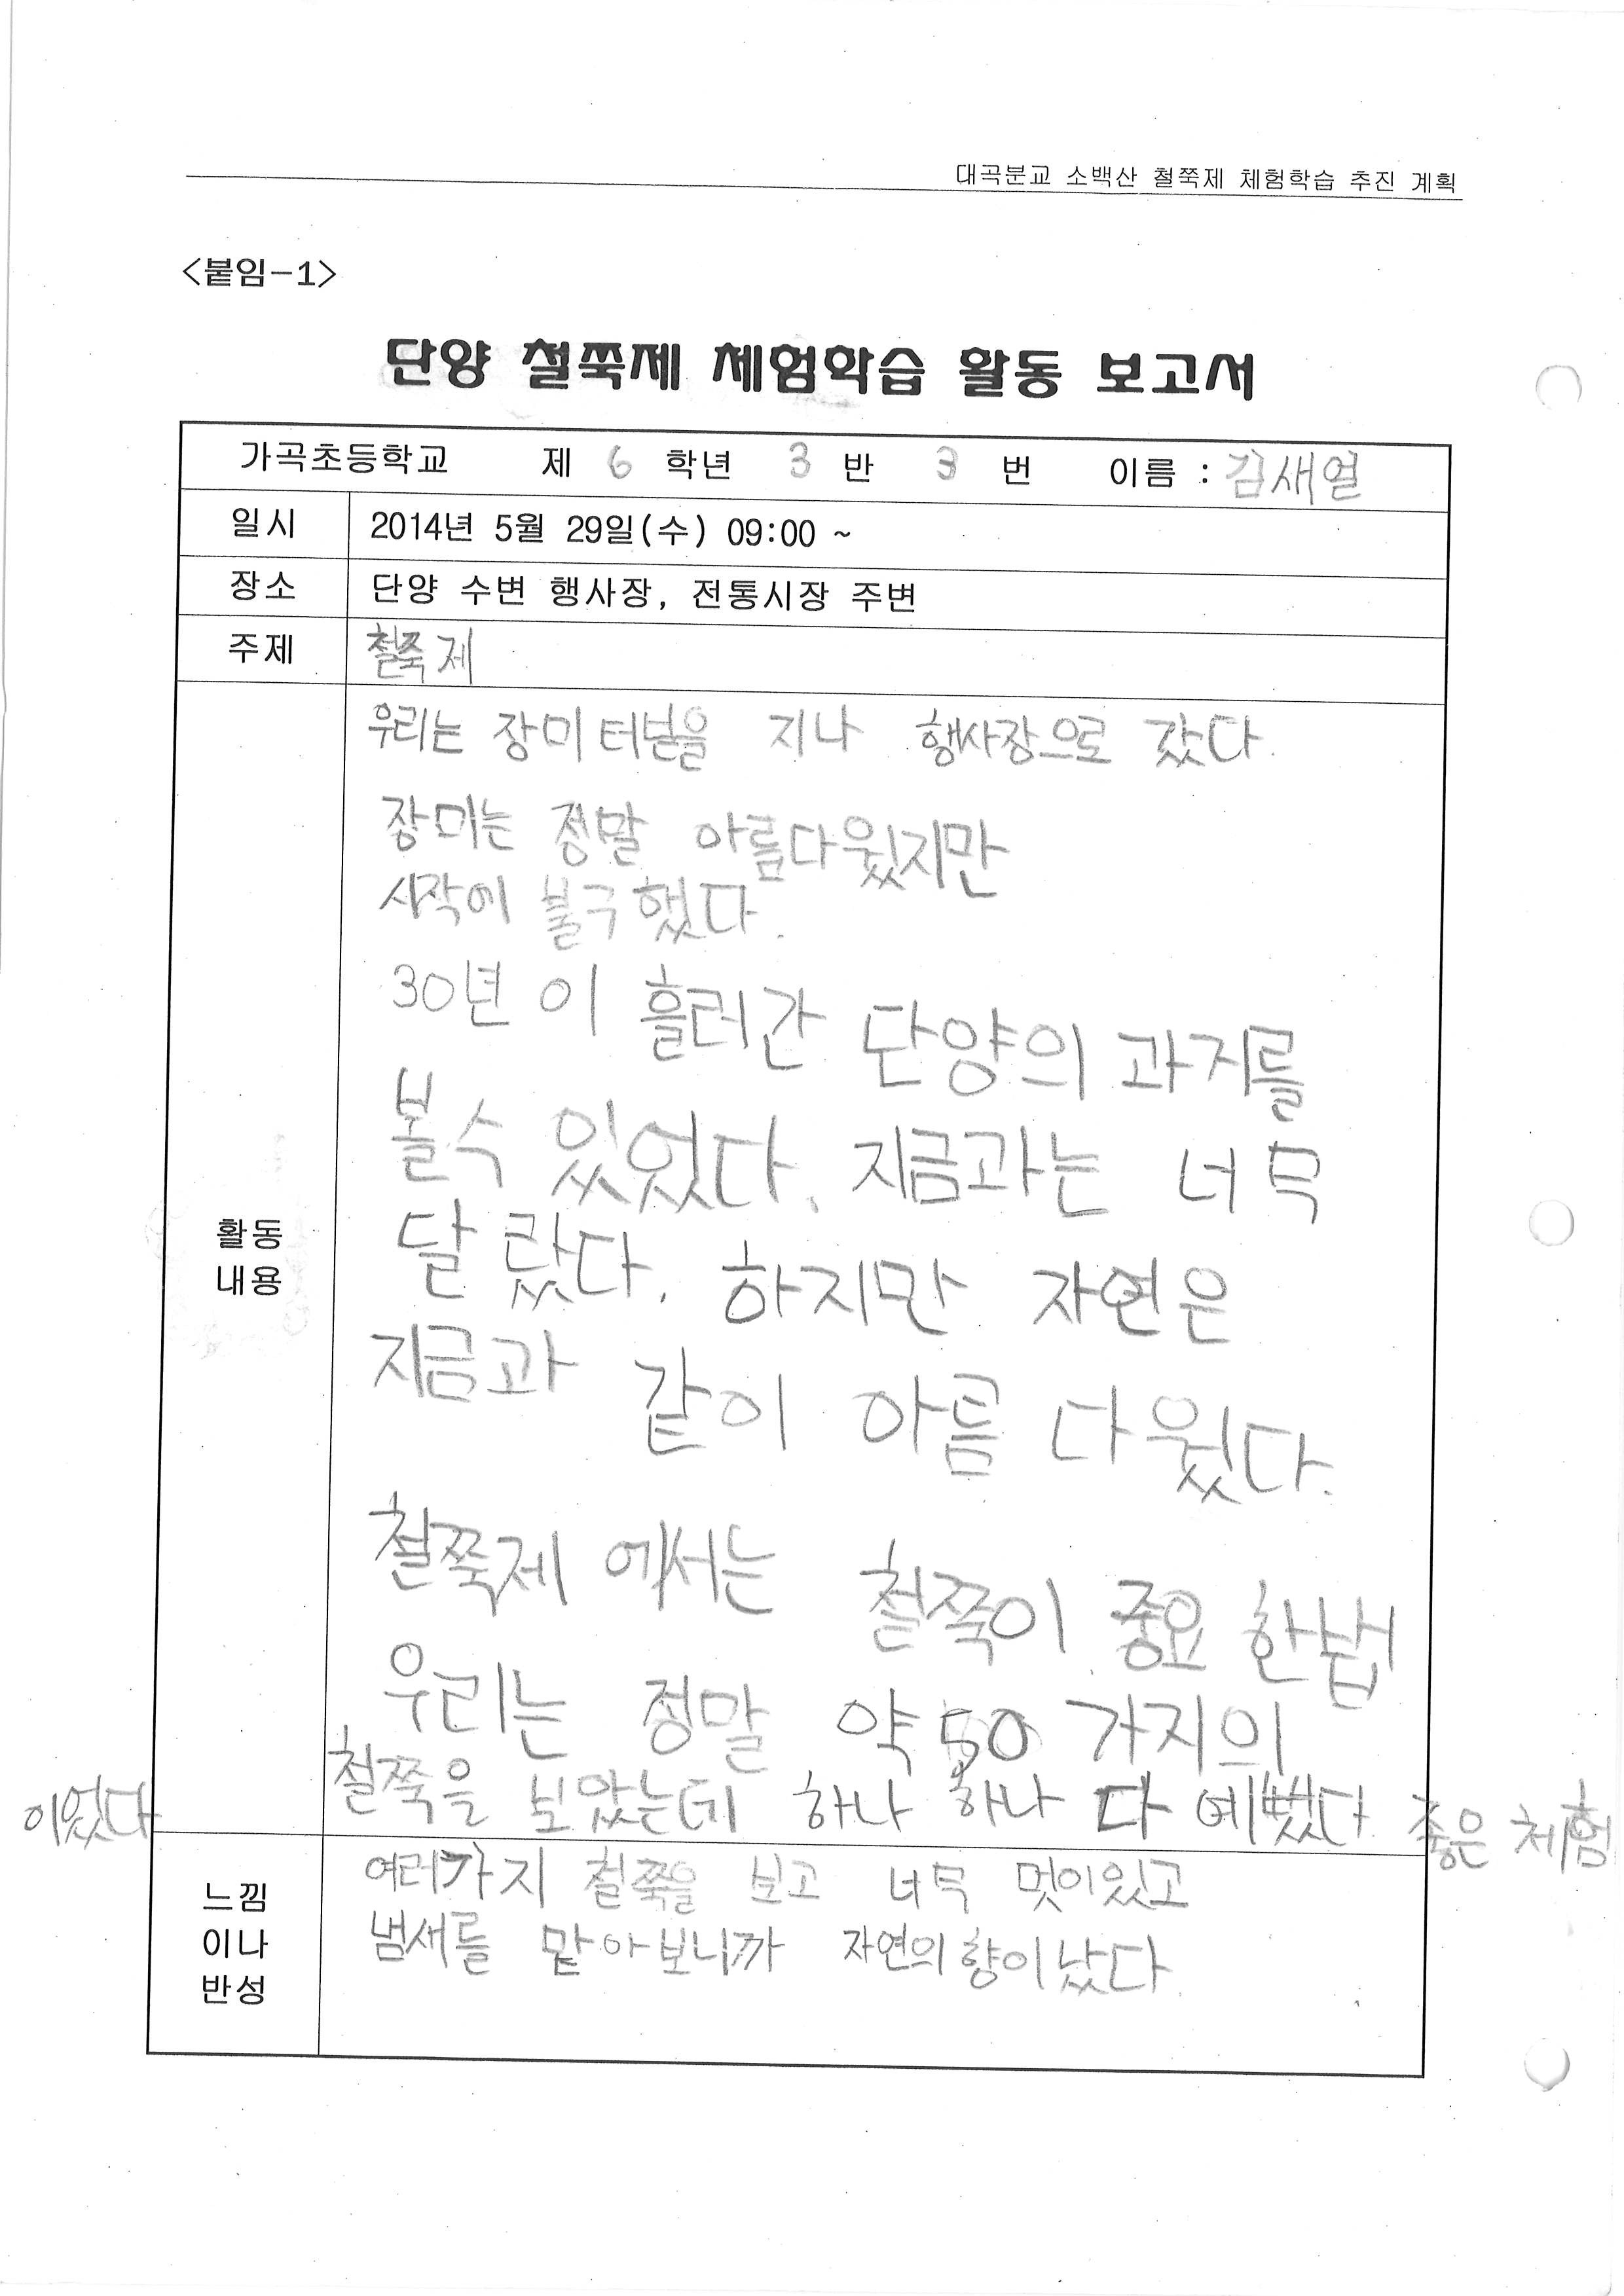 대곡분교 소백산 철쭉제 체험학습 추진 계획
<붙임-1>
단양 철쭉제 체험학습 활동 보고서
가곡초등학교 제 6 학년 3 반 3 번 이름 : 김새열
일시 2014년 5월 29일(수) 09:00 ~
장소 단양 수변 행사장, 전통시장 주변
주제 철쭉제
활동 내용
우리는 장미터널을 지나 행사장으로 갔다.
장미는 정말 아름다웠지만
시작에 불구했다.
30년이 흘러간 단양의 과거를
볼수 있었다. 지금과는 너무
달랐다. 하지만 자연은
지금과 같이 아름다웠다.
철쭉제 에서는 철쭉이 중요한법
우리는 정말 약 50가지의
철쭉을 보았는데 하나 하나 다 예뻤다. 좋은 체험
이었다
느낌이나 반성
여러가지 철쭉을 보고 너무 멋이있고
냄새를 맡아보니까 자연의향이났다.